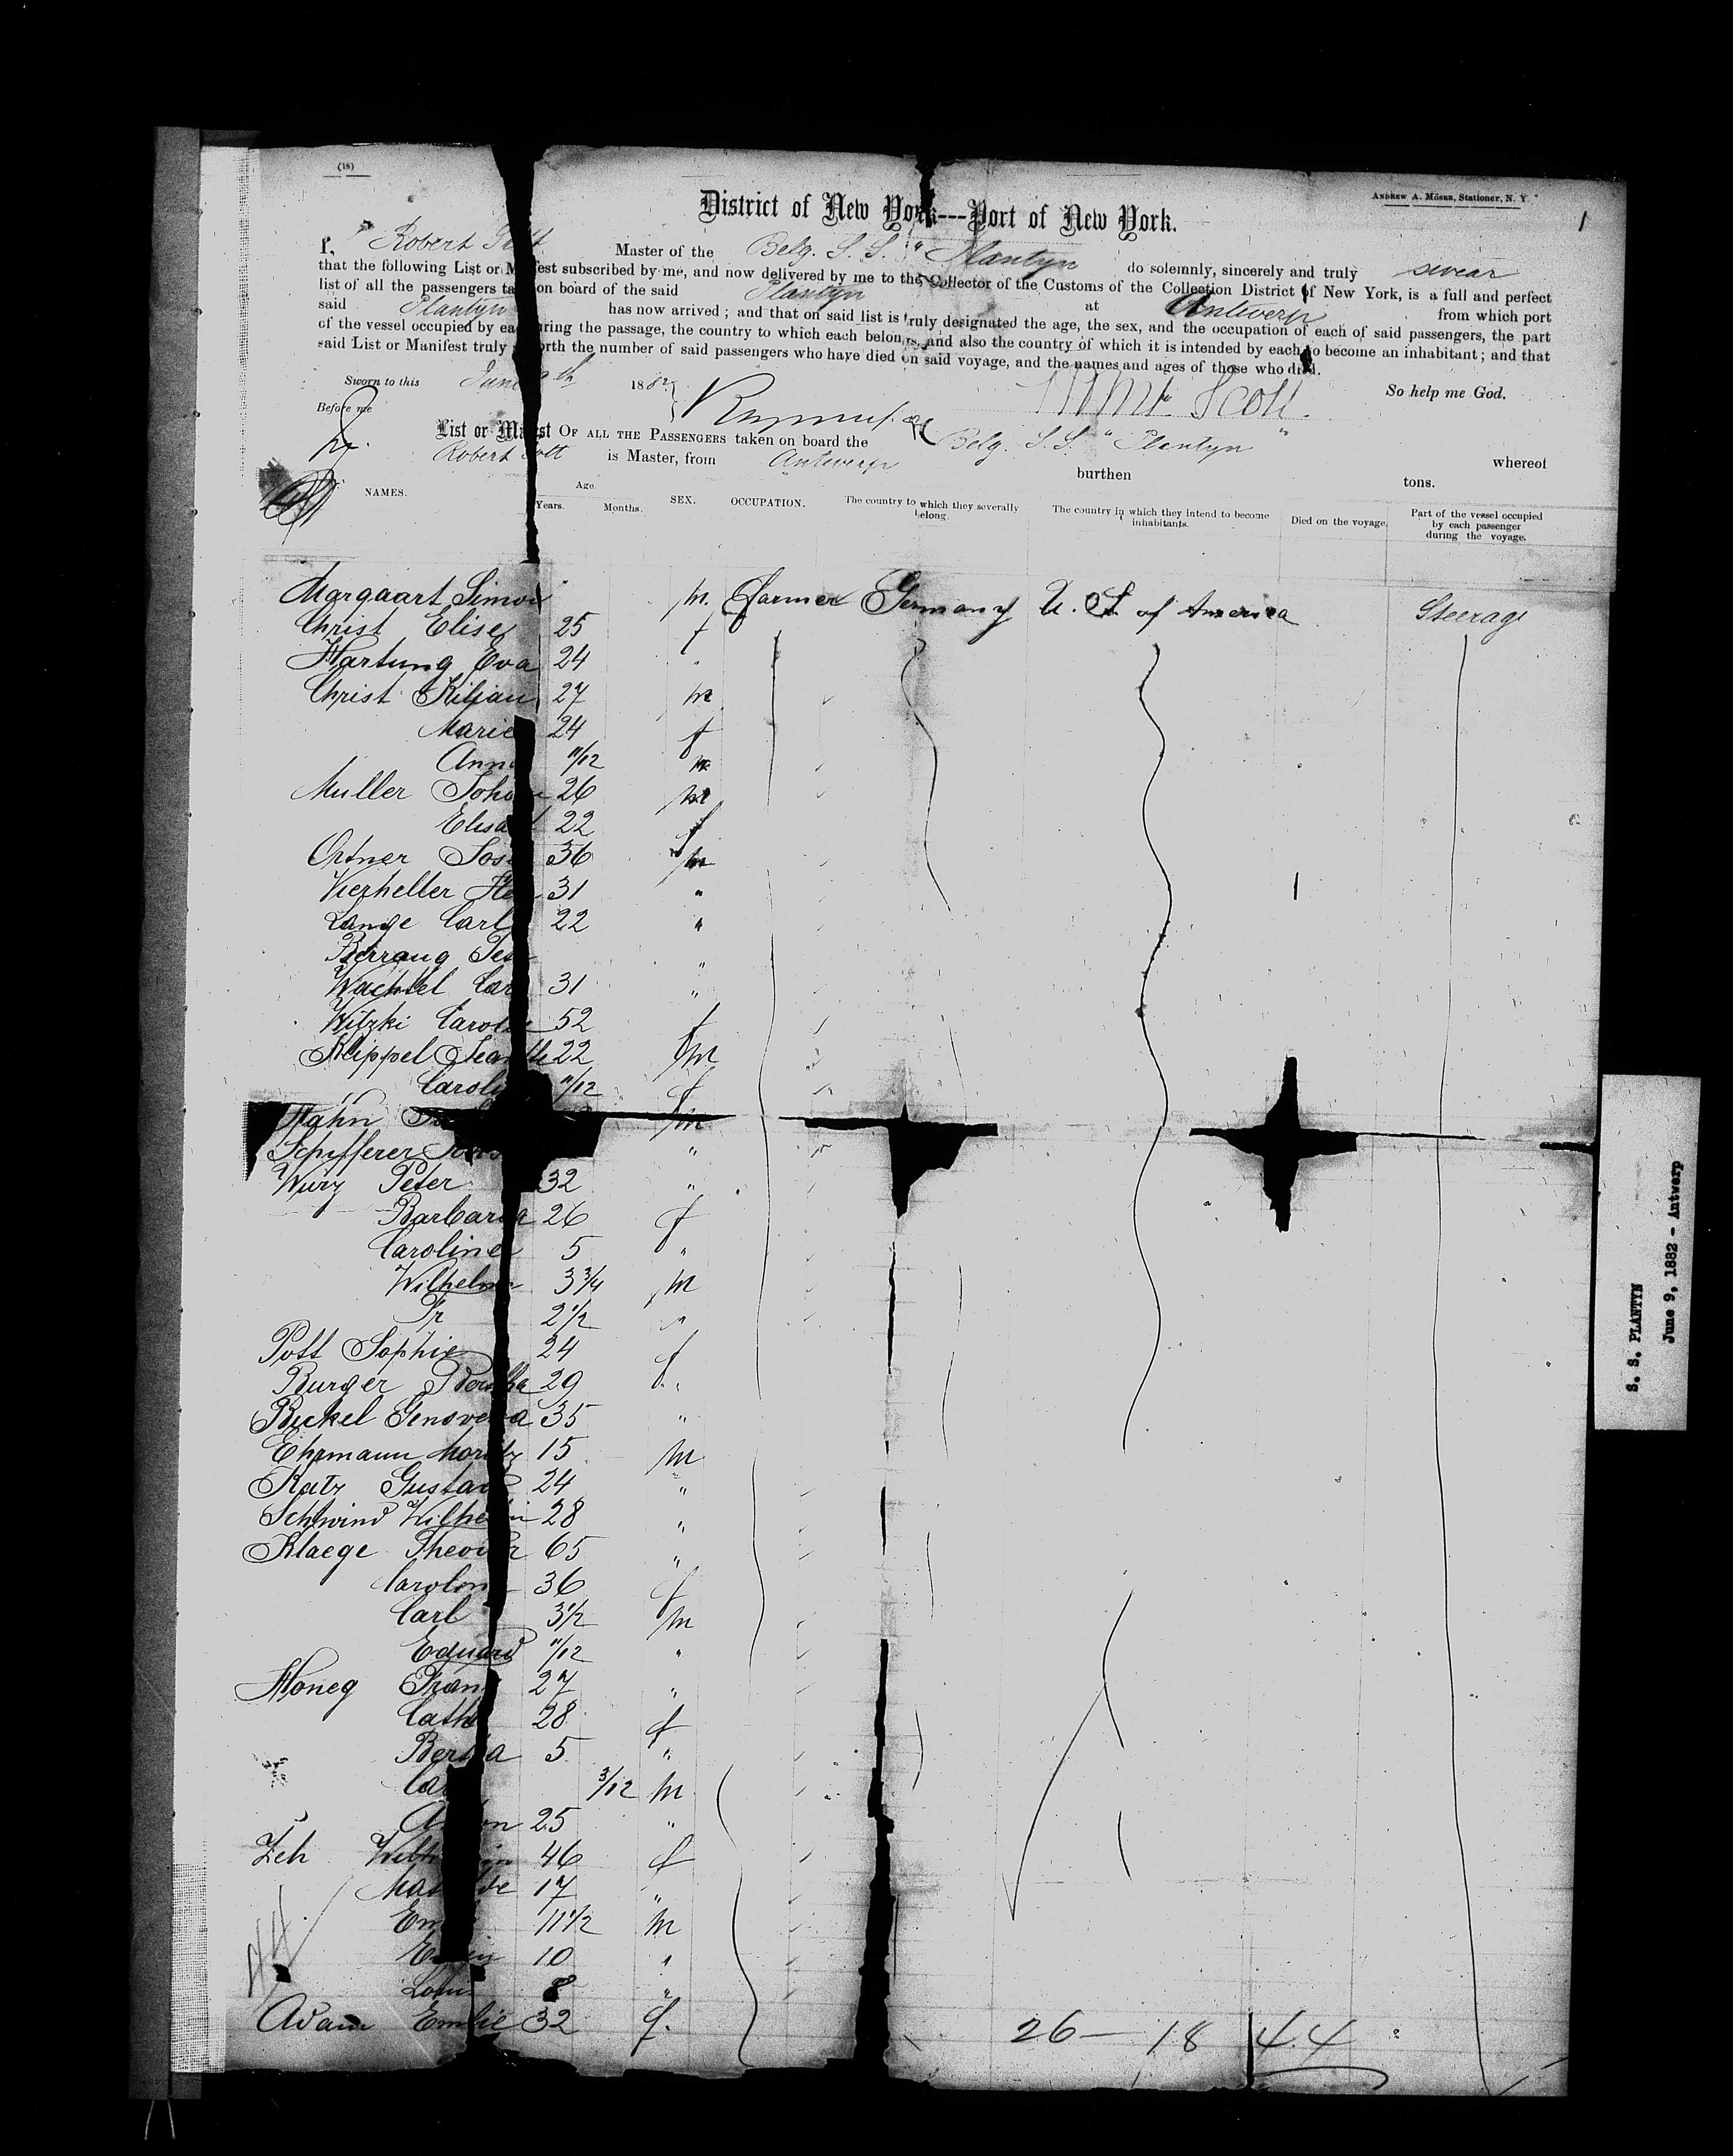 (18)
ANDREW A. MÖSER, Stationer, N. Y.
1
District of New York---Port of New York.
I, Robert Master of the Belg. S. S. "Plantyn do solemnly, sincerely and truly swear
that the following List or M fest subscribed by me, and now delivered by me to the Collector of the Customs of the Collection District of New York, is a full and perfect
list of all the passengers ta on board of the said Plantyn at Antwerp from which port
said Plantyn has now arrived ; and that on said list is truly designated the age, the sex, and the occupation of each of said passengers, the part
of the vessel occupied by ea uring the passage, the country to which each belongs, and also the country of which it is intended by each to become an inhabitant ; and that
said List or Manifest truly orth the number of said passengers who have died on said voyage, and the names and ages of those who died.
Sworn to this June 9th 1882 So help me God.
Before me
List or Ma est OF ALL THE PASSENGERS taken on board the Belg. S. S. "Plantyn" whereof
Robert is Master, from Antwerp burthen tons.
NAMES. Age. Years. Months. SEX. OCCUPATION. The country to which they severally belong. The country in which they intend to become inhabitants. Died on the voyage. Part of the vessel occupied by each passenger during the voyage.
Margaart Simon m. Farmer Germany U. S. of America Steerage
Christ Elise 25 f
Hartung Eva 24 "
Christ Kilian 27 m
Marie 24 f
Ann 11/12 m
Muller Joh 26 m
Elisa 22 f
Ortner Jos 36 m
Vierheller He 31 "
Lange Carl 22 "
Berrang "
Wachtel Car 31 "
Witzki Carol 52 f
Klippel Jea 22 m
Carol 11/12 f
Hahn m
Schifferer "
Wurz Peter 32 "
Barbara 26 f
Caroline 5 "
Wilhelm 3 3/4 m
Fr 2 1/2 "
Pott Sophie 24 f
Burger Bertha 29 f. "
Bickel Genoveva 35 "
Ehrmann Moritz 15 m
Katz Gustav 24 "
Schwind Wilhelm 28 "
Klaege Theodor 65 "
Carolin 36 f
Carl 3 1/2 m
Eduard 11/12 "
Honeg Fran 27 "
Cath 28 f
Bertha 5 "
Ca 3/12 m
A n 25 "
Zeh Wilh 46 f
Mat de 17 "
Em 11 1/2 m
E 10 "
Loui 8 "
Adam Emilie 32 f.
44
26 — 18 44
S. S. PLANTYN
June 9, 1882 - Antwerp